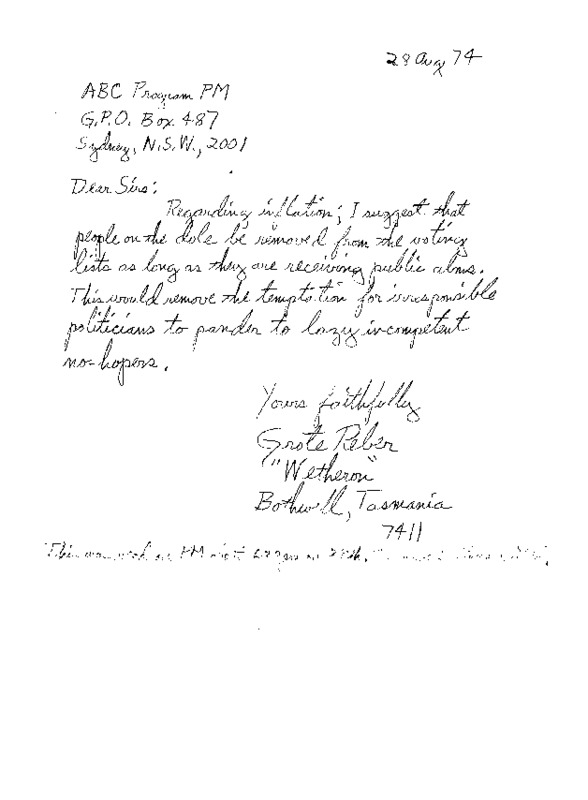 28 Aug 74
ABC Program PM
G.P.O. Box 487
Sydney, N.S.W., 2001
Dear Sirs:
Regarding inflation; I suggest that
people on the dole be removed from the voting
lists as long as they are receiving public alms.
This would remove the temptation for irresponsible
politicians to pander to lazy incompetent
no-hopers.
Yours faithfully
Grote Reber
"Wetheron"
Bothwell, Tasmania
7411
This was PM